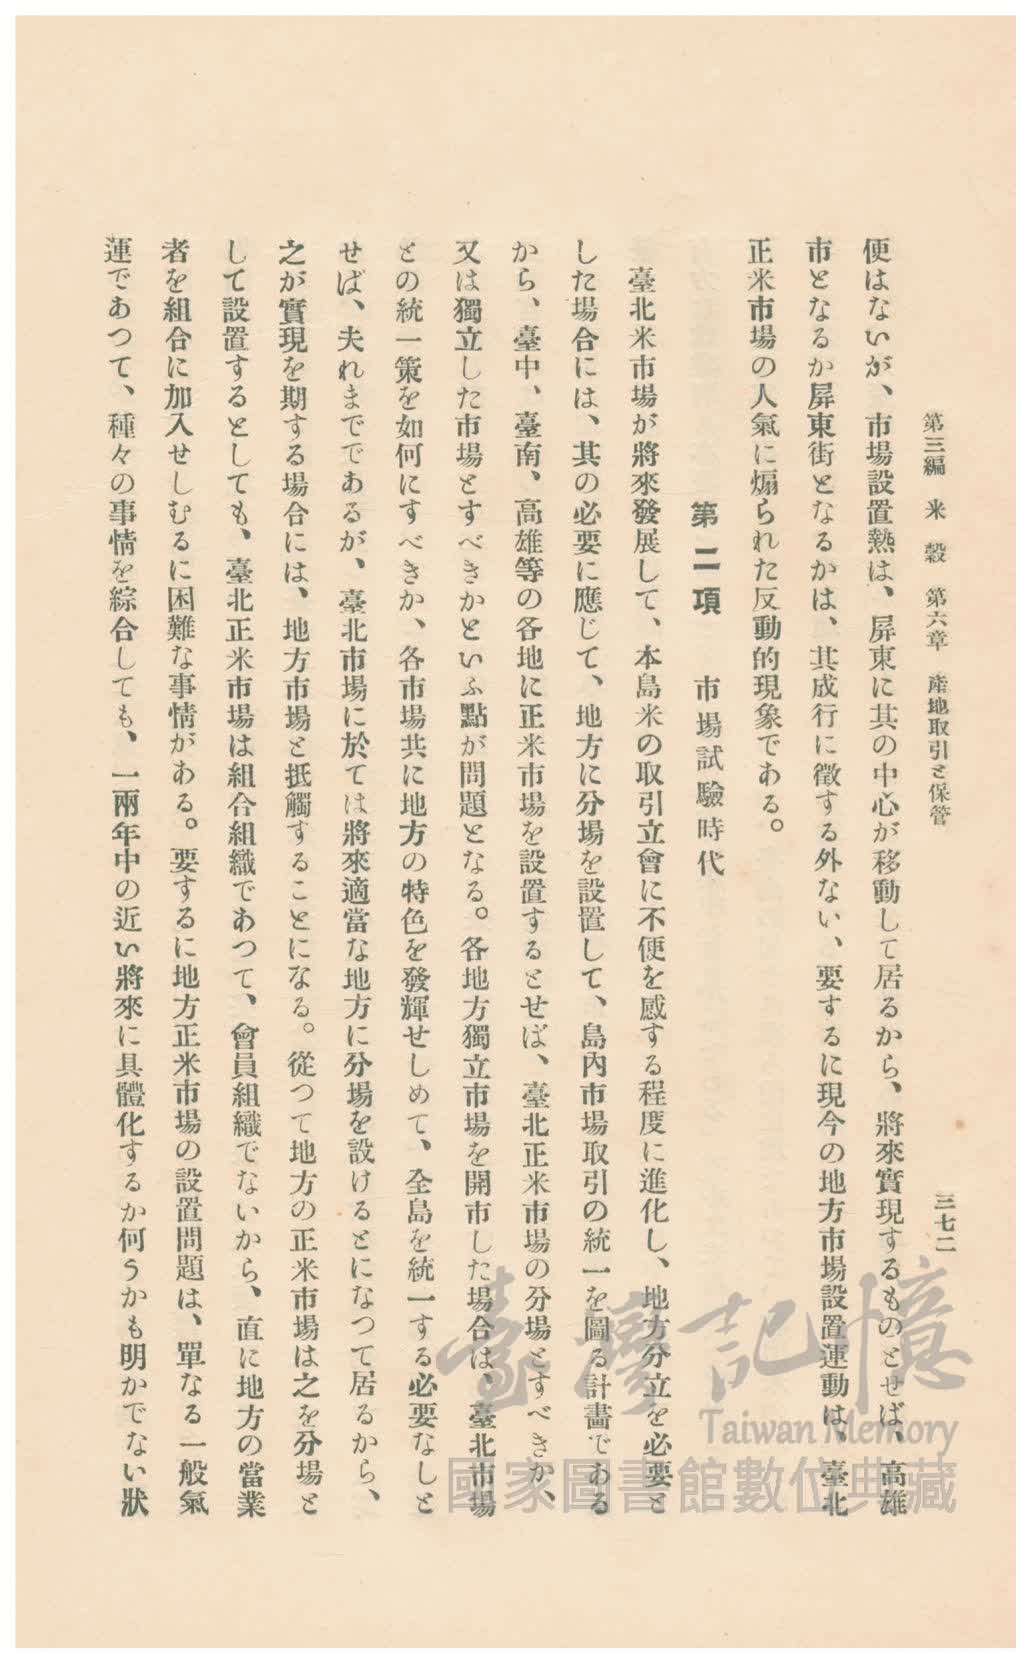 第三編　米　穀　第六章　產地取引と保管
三七二
便はないが、市場設置熱は、屏東に其の中心が移動して居るから、將來實現するものとせば、高雄
市となるか屏東街となるかは、其成行に徵する外ない、要するに現今の地方市場設置運動は、臺北
正米市場の人氣に煽られた反動的現象である。
第二項　市場試驗時代
臺北米市場が將來發展して、本島米の取引立會に不便を感ずる程度に進化し、地方分立を必要と
した場合には、其の必要に應じて、地方に分場を設置して、島內市場取引の統一を圖る計畵である
から、臺中、臺南、高雄等の各地に正米市場を設置するとせば、臺北正米市場の分場とすべきか、
又は獨立した市場とすべきかといふ點が問題となる。各地方獨立市場を開市した場合は、臺北市場
との統一策を如何にすべきか、各市場共に地方の特色を發輝せしめて、全島を統一する必要なしと
せば、夫れまでであるが、臺北市場に於ては將來適當な地方に分場を設けるとになつて居るから、
之が實現を期する場合には、地方市場と抵觸することになる。從つて地方の正米市場は之を分場と
して設置するとしても、臺北正米市場は組合組織であつて、會員組織でないから、直に地方の當業
者を組合に加入せしむるに困難な事情がある。要するに地方正米市場の設置問題は、單なる一般氣
運であつて、種々の事情を綜合しても、一兩年中の近い將來に具體化するか何うかも明かでない狀
臺灣記憶
Taiwan Memory
國家圖書館數位典藏